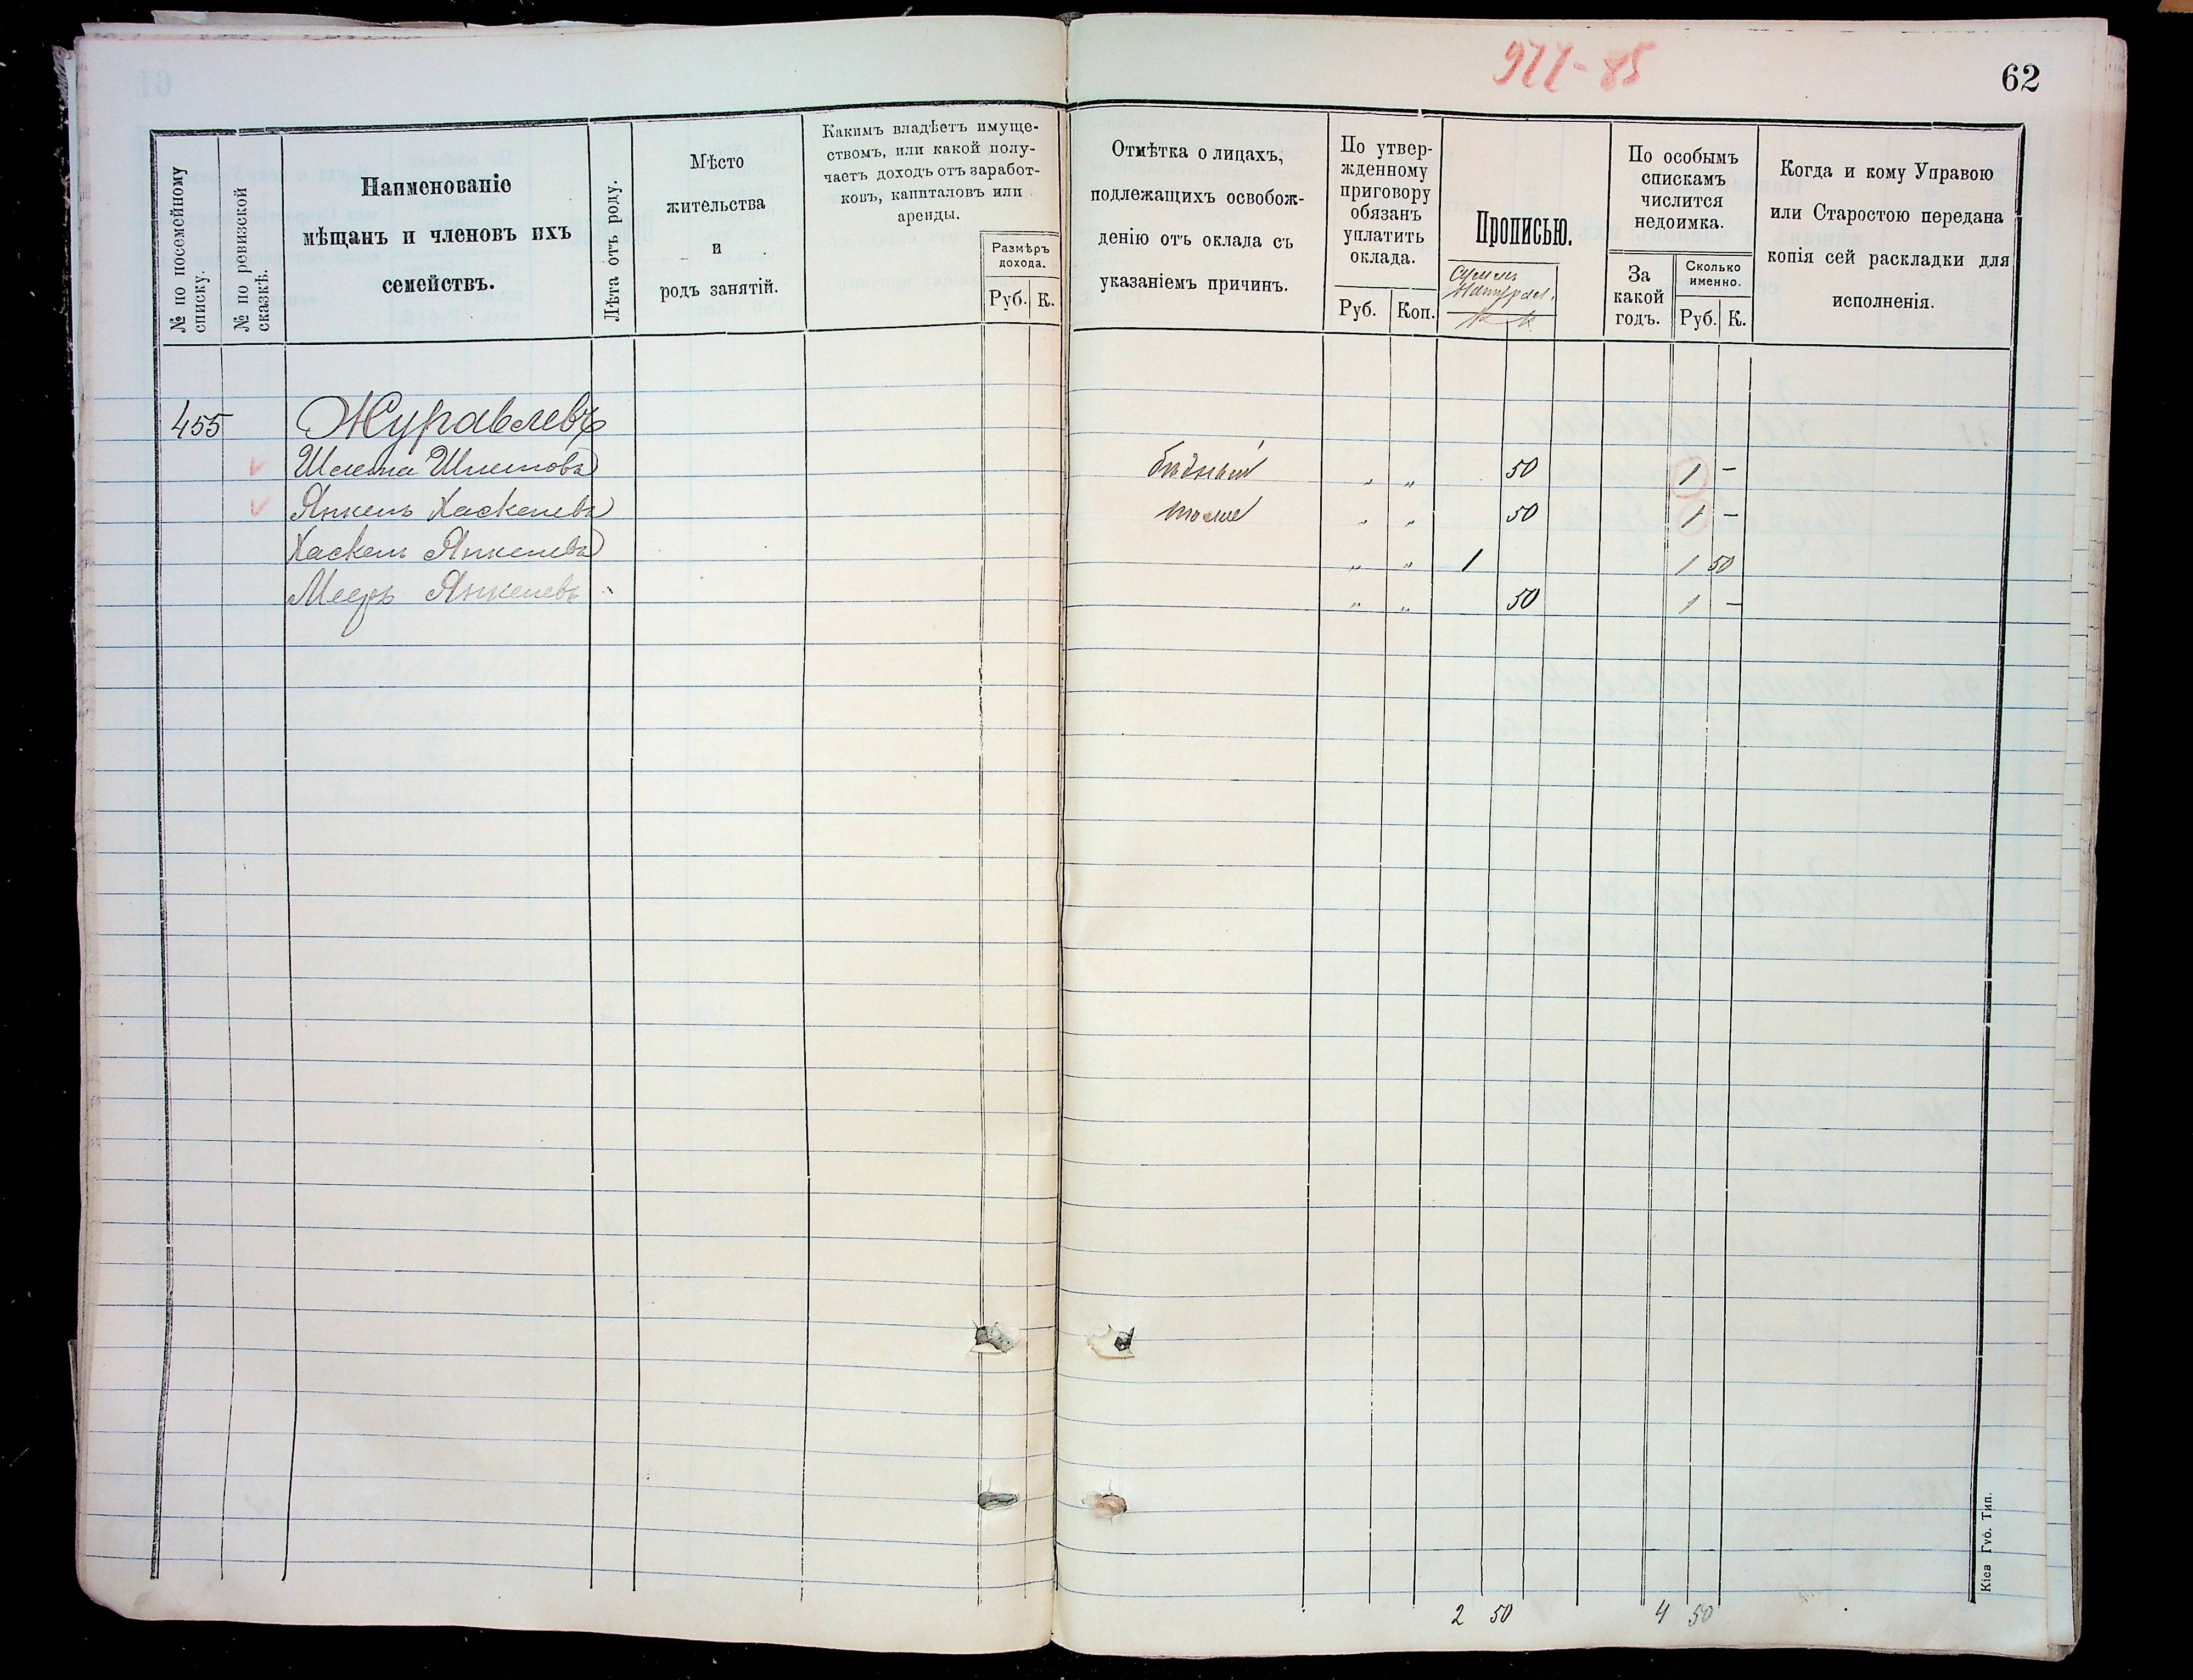 977-85
62
№ по посемейному списку.
№ по ревизской сказкѣ.
Наименованіе
мѣщанъ и членовъ ихъ
семействъ.
Лѣта отъ роду.
Мѣсто
жительства
и
родъ занятій.
Какимъ владѣетъ имуще-
ствомъ, или какой полу-
чаетъ доходъ отъ заработ-
ковъ, капиталовъ или
аренды.
Размѣръ
дохода.
Руб. К.
Отмѣтка о лицахъ,
подлежащихъ освобож-
денію отъ оклада съ
указаніемъ причинъ.
По утвер-
жденному
приговору
обязанъ
уплатить
оклада.
Руб. Коп.
Прописью.
По особымъ
спискамъ
числится
недоимка.
За
какой
годъ.
Сколько
именно.
Руб. К.
Когда и кому Управою
или Старостою передана
копія сей раскладки для
исполненія.
455 Журавлевъ
Шлема Шлемовъ бѣдный „ „ 50 1 —
Янкель Хаскелевъ тоже „ „ 50 1 —
Хаскель Янкелевъ „ „ 1 1 50
Мееръ Янкелевъ „ „ 50 1 —
2 50 4 50
Кіев Губ. Тип.